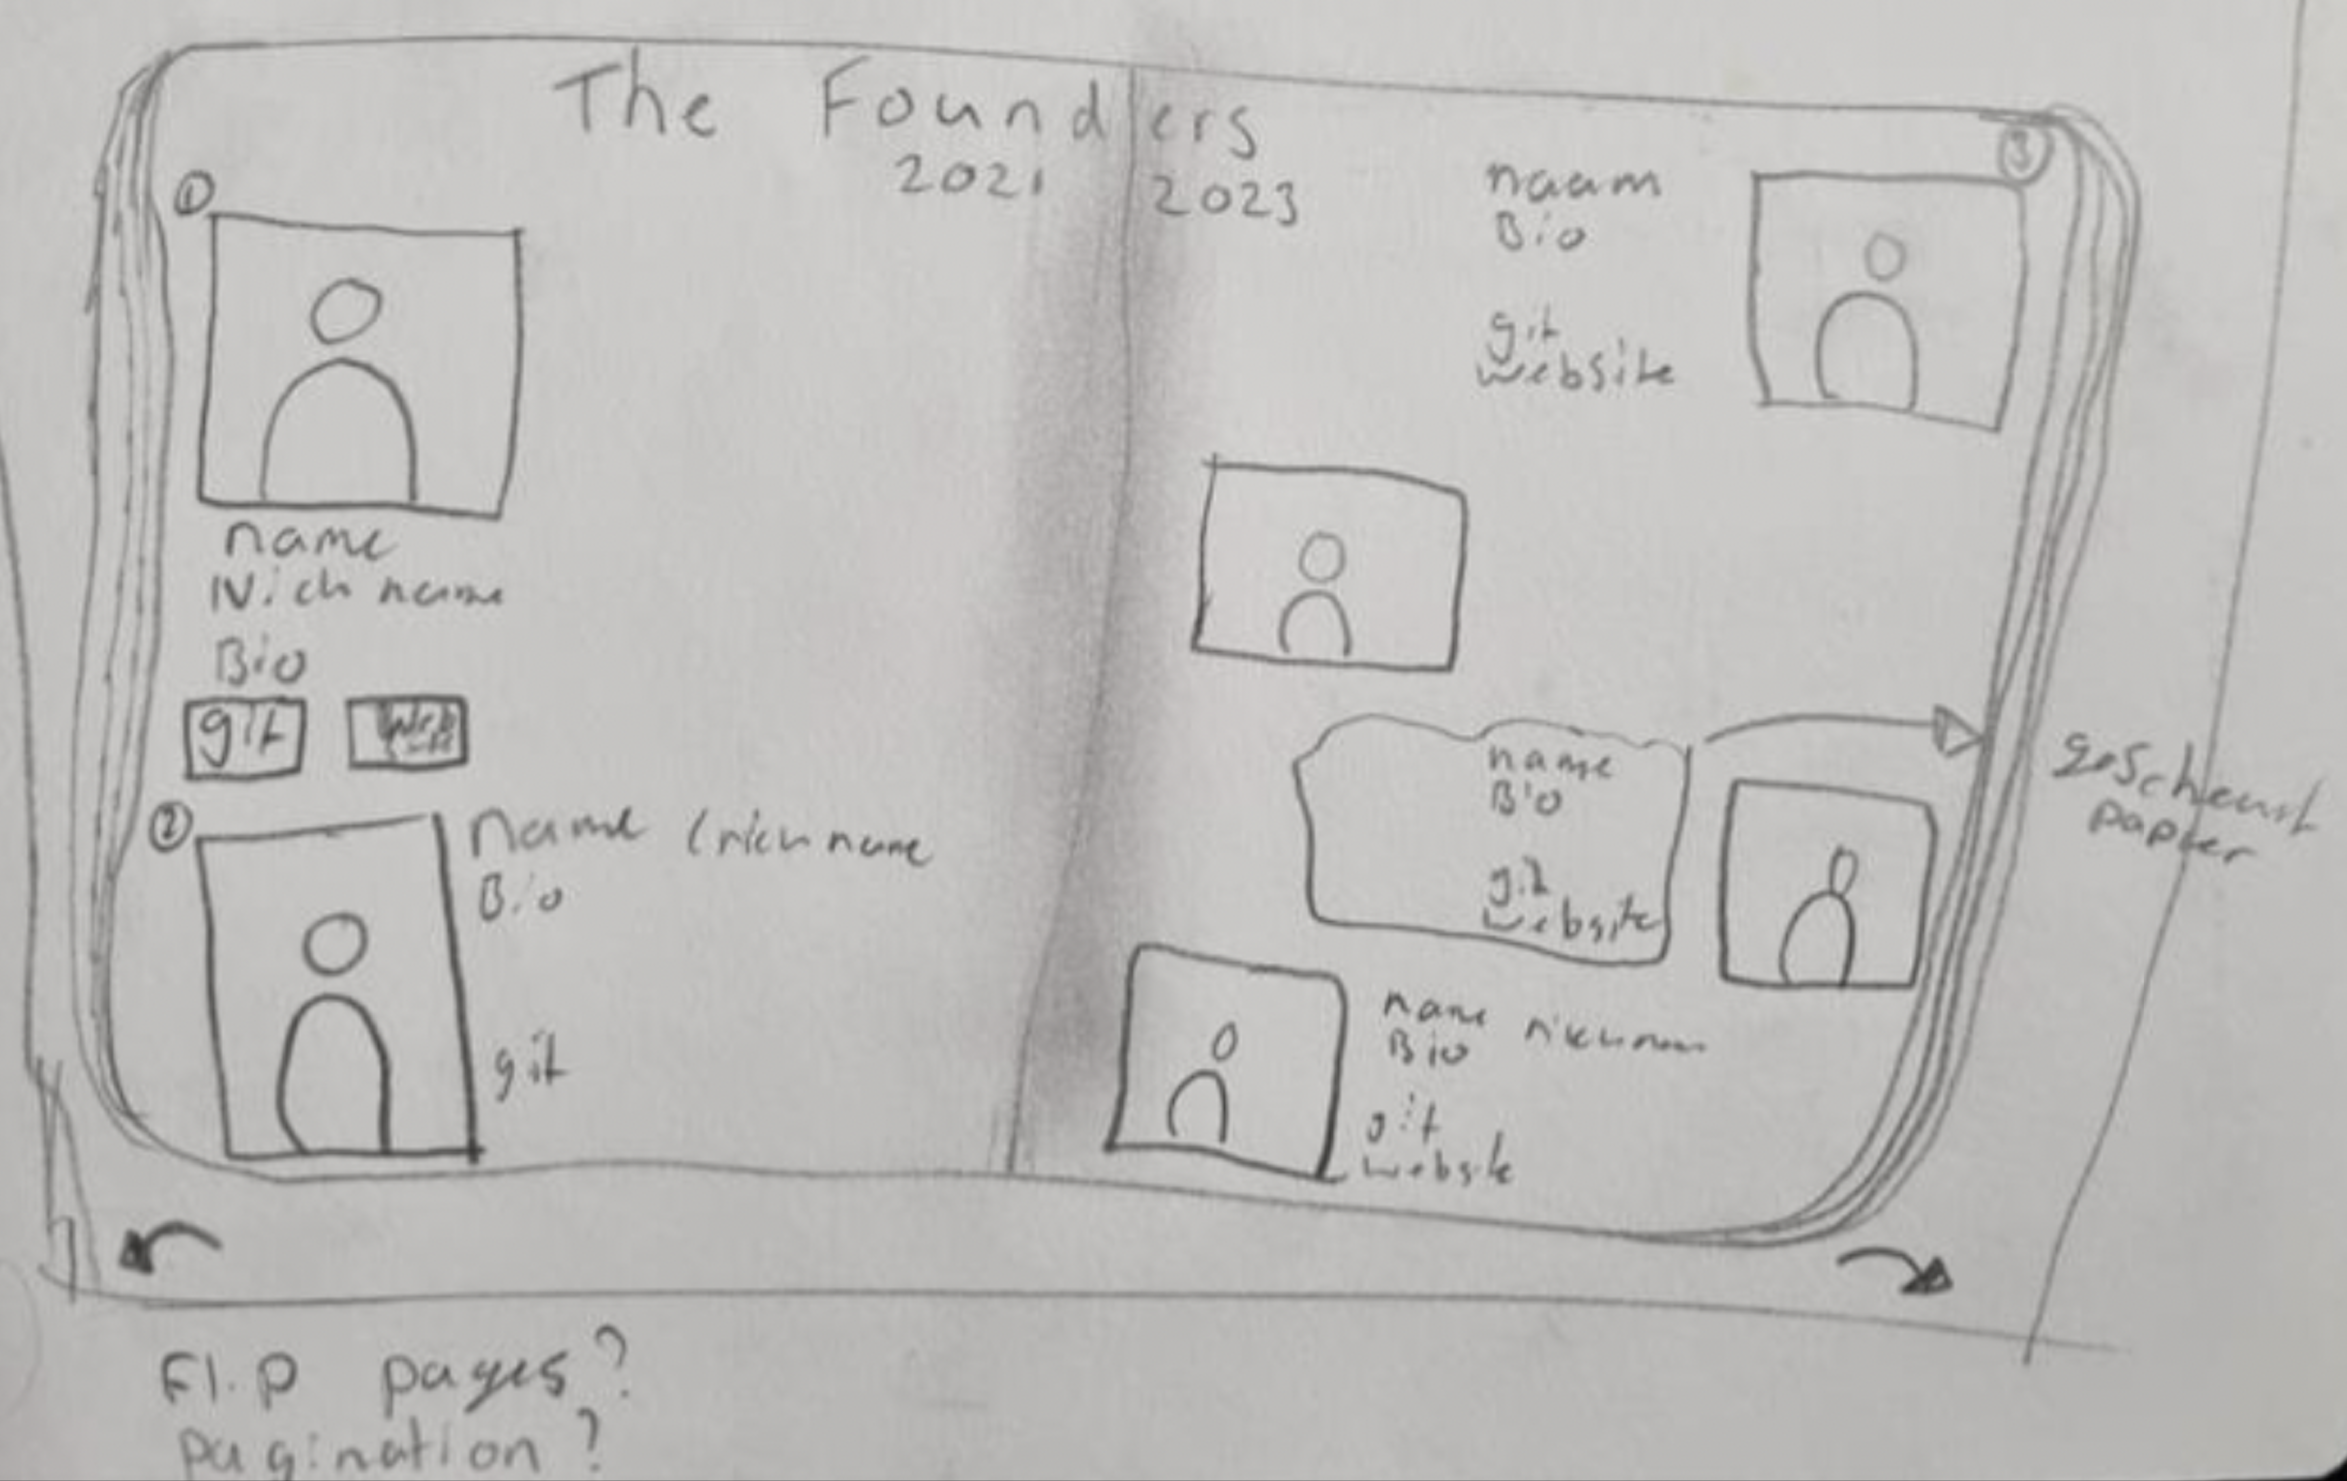 The Founders
2021 2023
①
name
Nickname
Bio
git
②
Name (nickname
Bio
git
③
naam
Bio
git
website
name
Bio
git
website
gescheurt
papier
name nicknam
Bio
git
website
Flip pages?
pagination?